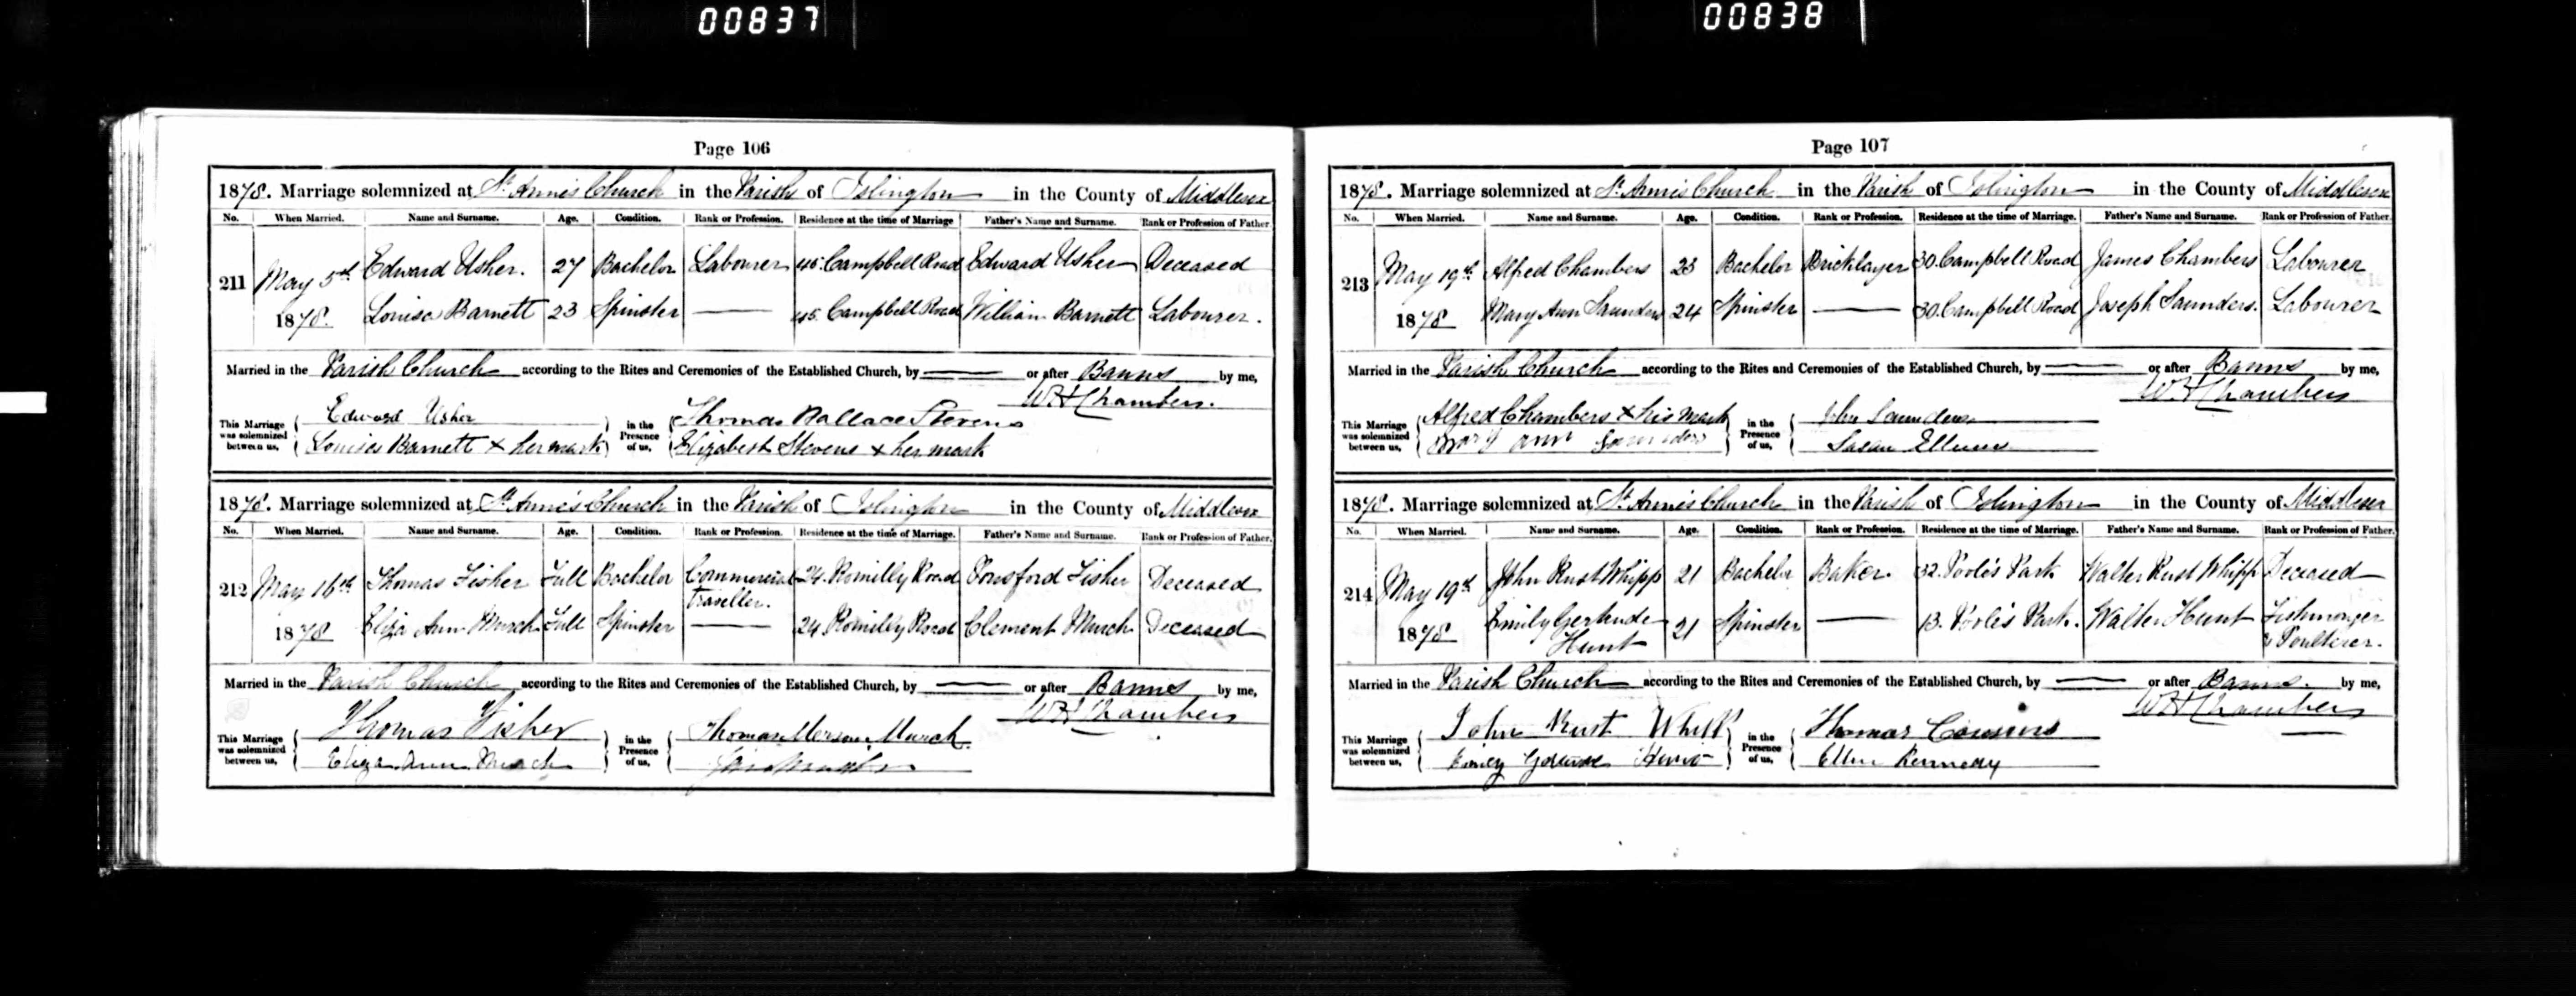 00837
00838
Page 106
1878. Marriage solemnized at St. Anne's Church in the Parish of Islington in the County of Middlesex
No. When Married. Name and Surname. Age. Condition. Rank or Profession. Residence at the time of Marriage Father's Name and Surname. Rank or Profession of Father.
211 May 5th 1878. Edward Usher. 27 Bachelor Labourer 45. Campbell Road Edward Usher Deceased
Louisa Barnett 23 Spinster — 45. Campbell Road William Barnett Labourer.
Married in the Parish Church according to the Rites and Ceremonies of the Established Church, by — or after Banns by me,
W H Chambers.
This Marriage was solemnized between us, Edward Usher in the Presence of us, Thomas Wallace Stevens
Louisa Barnett x her mark Elizabeth Stevens x her mark
1878. Marriage solemnized at St. Anne's Church in the Parish of Islington in the County of Middlesex
No. When Married. Name and Surname. Age. Condition. Rank or Profession. Residence at the time of Marriage. Father's Name and Surname. Rank or Profession of Father.
212 May 16th 1878 Thomas Fisher Full Bachelor Commercial Traveller. 24. Romilly Road Ponsford Fisher Deceased
Eliza Ann Murch Full Spinster — 24 Romilly Road Clement Murch Deceased
Married in the Parish Church according to the Rites and Ceremonies of the Established Church, by — or after Banns by me,
W H Chambers
This Marriage was solemnized between us, Thomas Fisher in the Presence of us, Thomas Murch
Eliza Ann Murch
Page 107
1878. Marriage solemnized at St. Anne's Church in the Parish of Islington in the County of Middlesex
No. When Married. Name and Surname. Age. Condition. Rank or Profession. Residence at the time of Marriage. Father's Name and Surname. Rank or Profession of Father.
213 May 19th 1878 Alfred Chambers 23 Bachelor Bricklayer 30. Campbell Road James Chambers Labourer
Mary Ann Saunders 24 Spinster — 30. Campbell Road Joseph Saunders. Labourer
Married in the Parish Church according to the Rites and Ceremonies of the Established Church, by — or after Banns by me,
W H Chambers
This Marriage was solemnized between us, Alfred Chambers x his mark in the Presence of us, John Saunders
Mary ann Saunders Susan
1878. Marriage solemnized at St. Anne's Church in the Parish of Islington in the County of Middlesex
No. When Married. Name and Surname. Age. Condition. Rank or Profession. Residence at the time of Marriage. Father's Name and Surname. Rank or Profession of Father.
214 May 19th 1878 John Rust Whipp 21 Bachelor Baker. 32. Poole's Park Walter Rust Whipp Deceased
Emily Gertrude Hunt 21 Spinster — 13. Poole's Park. Walter Hunt Fishmonger & Poulterer.
Married in the Parish Church according to the Rites and Ceremonies of the Established Church, by — or after Banns. by me,
W H Chambers
This Marriage was solemnized between us, John Rust Whipp in the Presence of us, Thomas Cousins
Emily Gertrude Hunt Ellen Kennedy